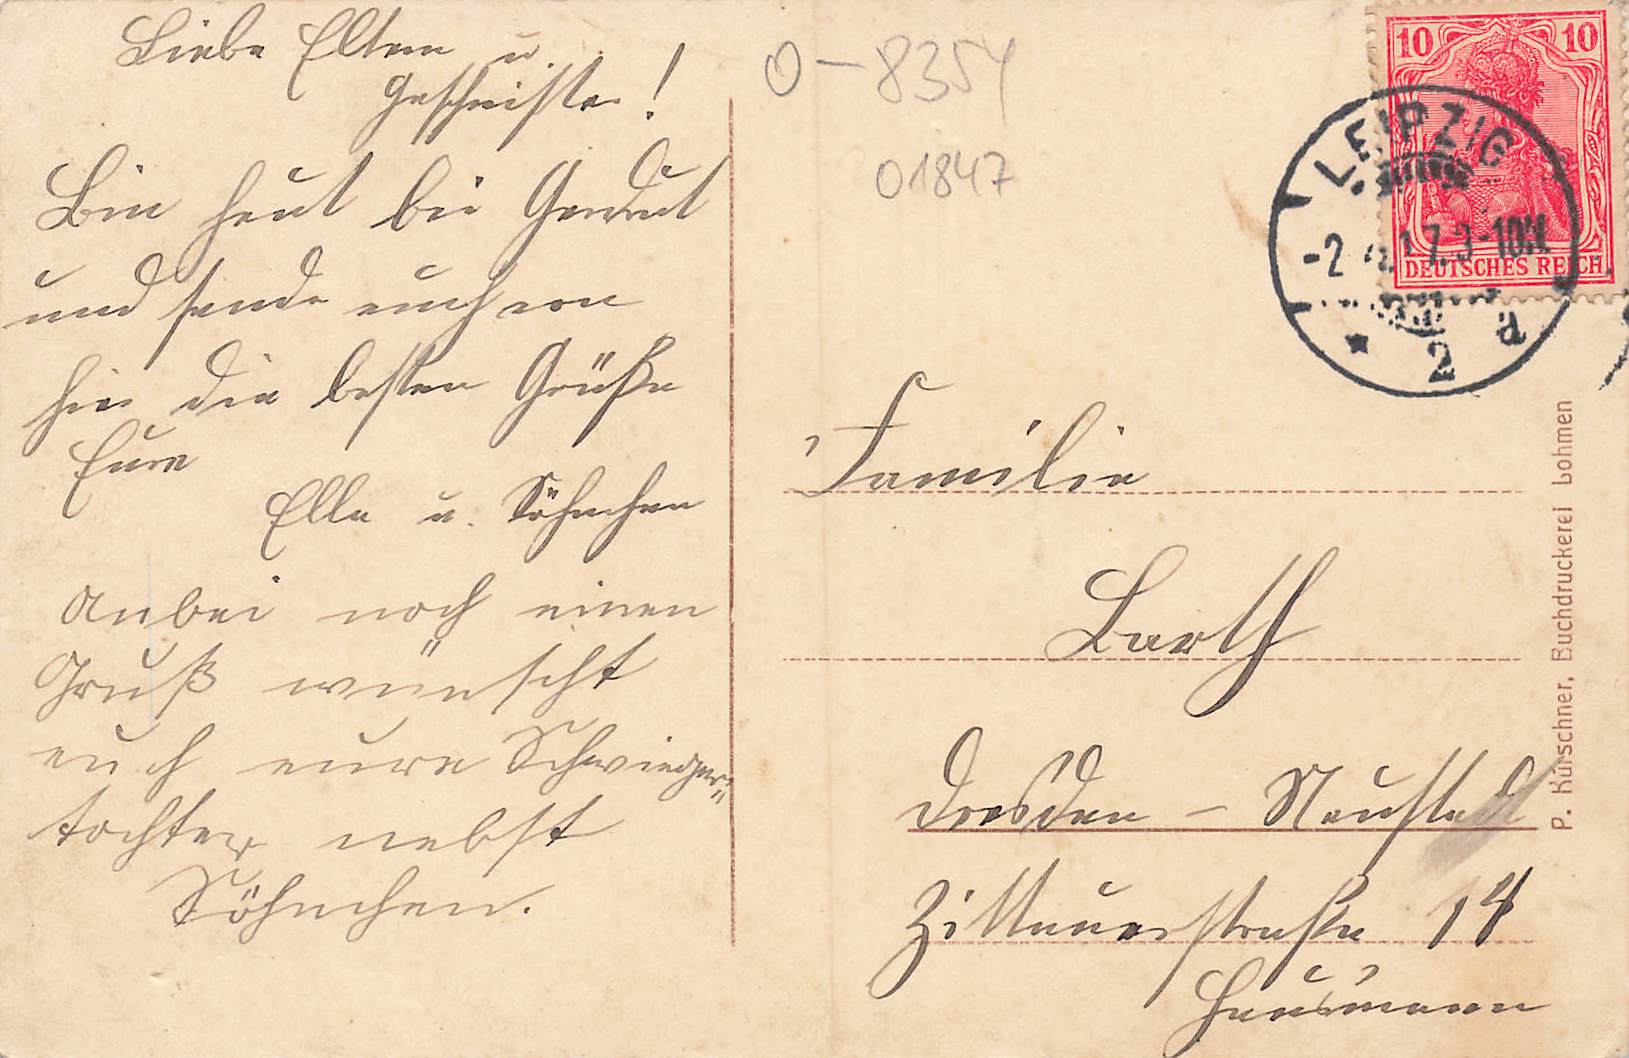 Liebe Eltern u.
Geschwister!
Bin heut bei Gertrut
und sende euch von
hier die besten Grüße
Eure
Ella u. Söhnchen
Anbei noch einen
Gruß wünscht
euch eure Schwieger-
tochter nebst
Söhnchen.
0-8354
01847
10 10
DEUTSCHES REICH
LEIPZIG
* 2 a
Familie
Barth
Dresden - Neustadt
Zittauerstraße 14
Hausmann
P. Kürschner, Buchdruckerei Lohmen